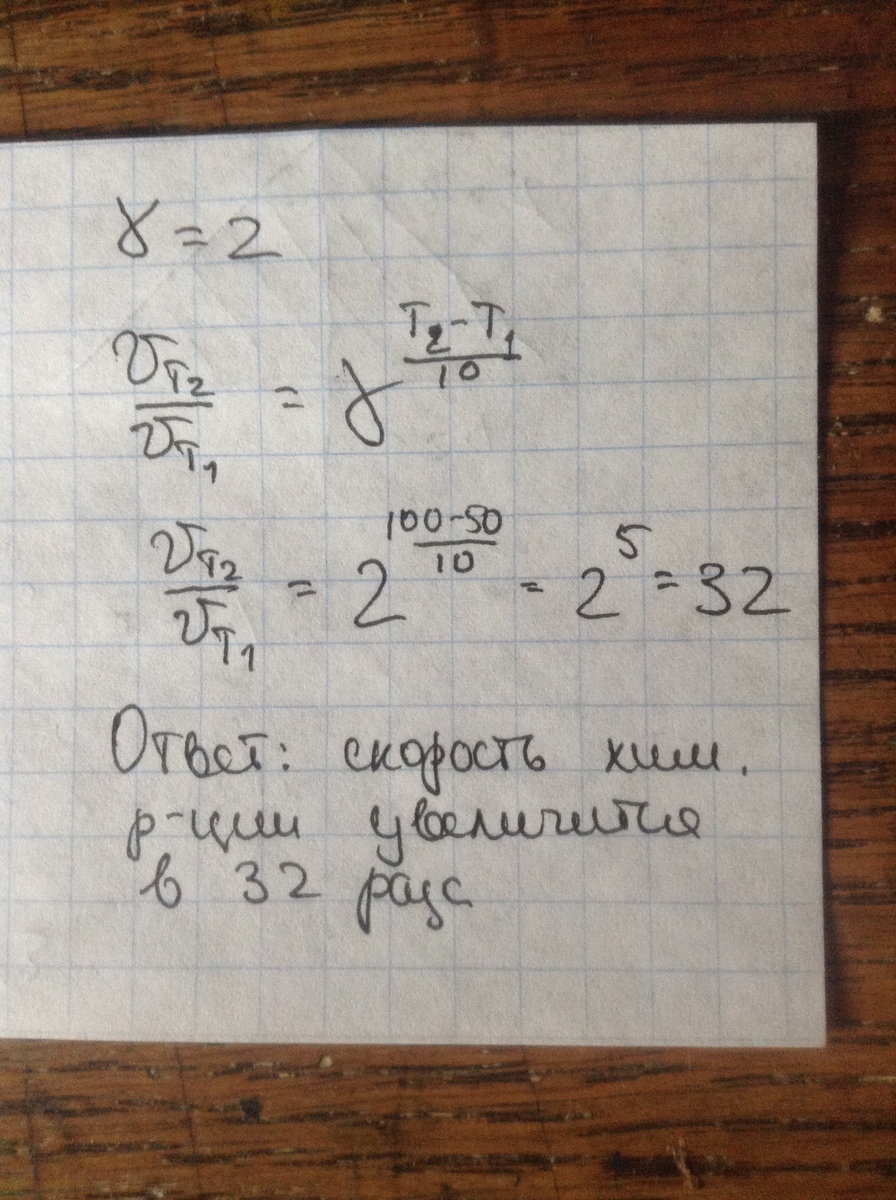 γ = 2
v_T₂ / v_T₁ = γ^((T₂ - T₁)/10)
v_T₂ / v_T₁ = 2^((100-50)/10) = 2^5 = 32
Ответ: скорость хим.
р-ции увеличится
в 32 раза